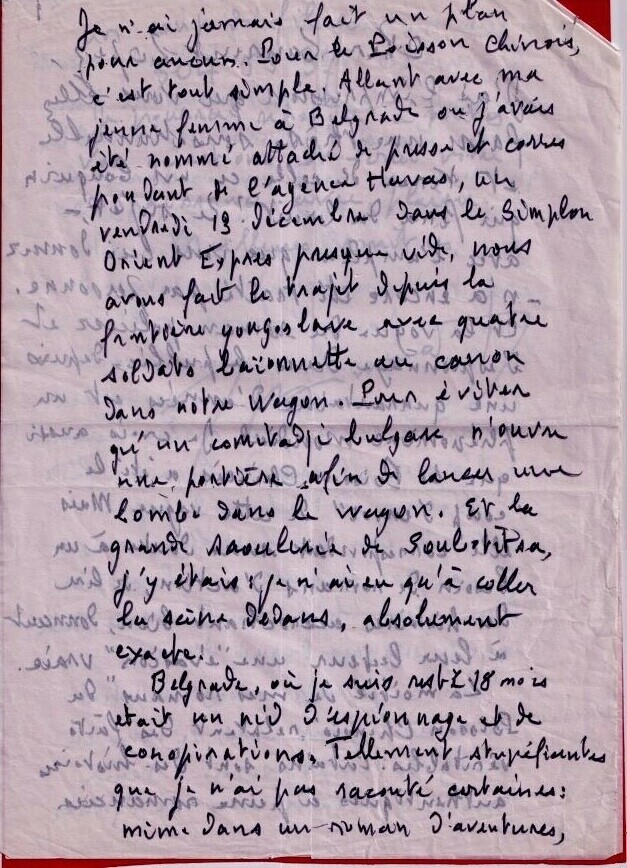 Je n'ai jamais fait un plan
pour aucun. Pour le Poisson Chinois,
c'est tout simple. Allant avec ma
jeune femme à Belgrade où j'avais
été nommé attaché de presse et corres
pondant de l'agence Havas, un
vendredi 13 décembre dans le Simplon
Orient Expres presque vide, nous
avons fait le trajet depuis la
frontière yougoslave avec quatre
soldats baïonnette au canon
dans notre wagon. Pour éviter
qu'un comitadji bulgare n'ouvre
une portière afin de lancer une
bombe dans le wagon. Et la
grande saoulerie de Soubotitsa,
j'y étais : je n'ai eu qu'à coller
la scène dedans, absolument
exacte.
Belgrade, où je suis resté 18 mois
était un nid d'espionnage et de
conspirations. Tellement stupéfiantes
que je n'ai pas raconté certaines :
même dans un roman d'aventures,